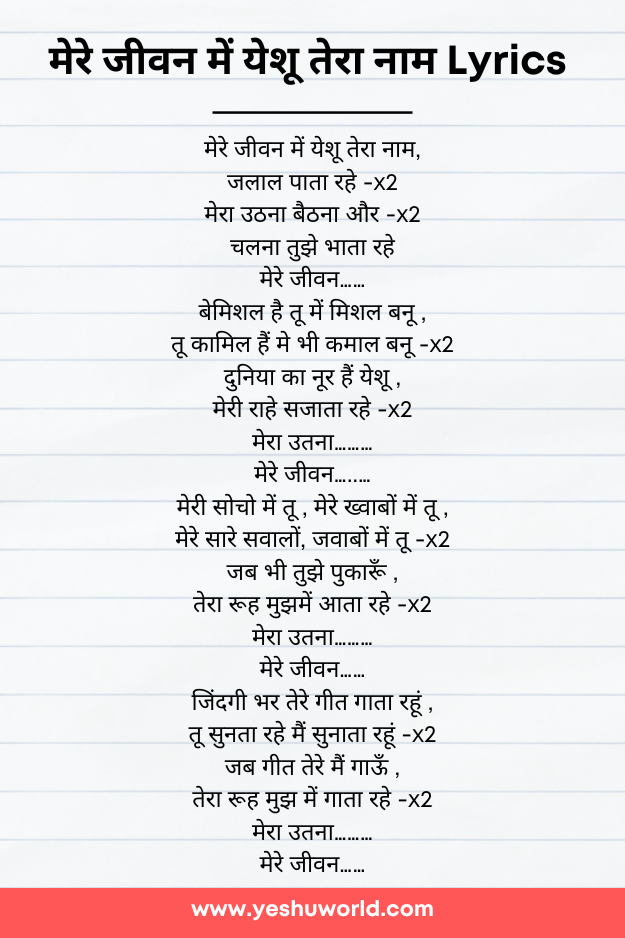 मेरे जीवन में येशू तेरा नाम Lyrics
मेरे जीवन में येशू तेरा नाम,
जलाल पाता रहे -x2
मेरा उठना बैठना और -x2
चलना तुझे भाता रहे
मेरे जीवन……
बेमिशल है तू में मिशल बनू ,
तू कामिल हैं मे भी कमाल बनू -x2
दुनिया का नूर हैं येशू ,
मेरी राहे सजाता रहे -x2
मेरा उतना………
मेरे जीवन…..…
मेरी सोचो में तू , मेरे ख्वाबों में तू ,
मेरे सारे सवालों, जवाबों में तू -x2
जब भी तुझे पुकारूँ ,
तेरा रूह मुझमें आता रहे -x2
मेरा उतना………
मेरे जीवन……
जिंदगी भर तेरे गीत गाता रहूं ,
तू सुनता रहे मैं सुनाता रहूं -x2
जब गीत तेरे मैं गाऊँ ,
तेरा रूह मुझ में गाता रहे -x2
मेरा उतना………
मेरे जीवन……
www.yeshuworld.com